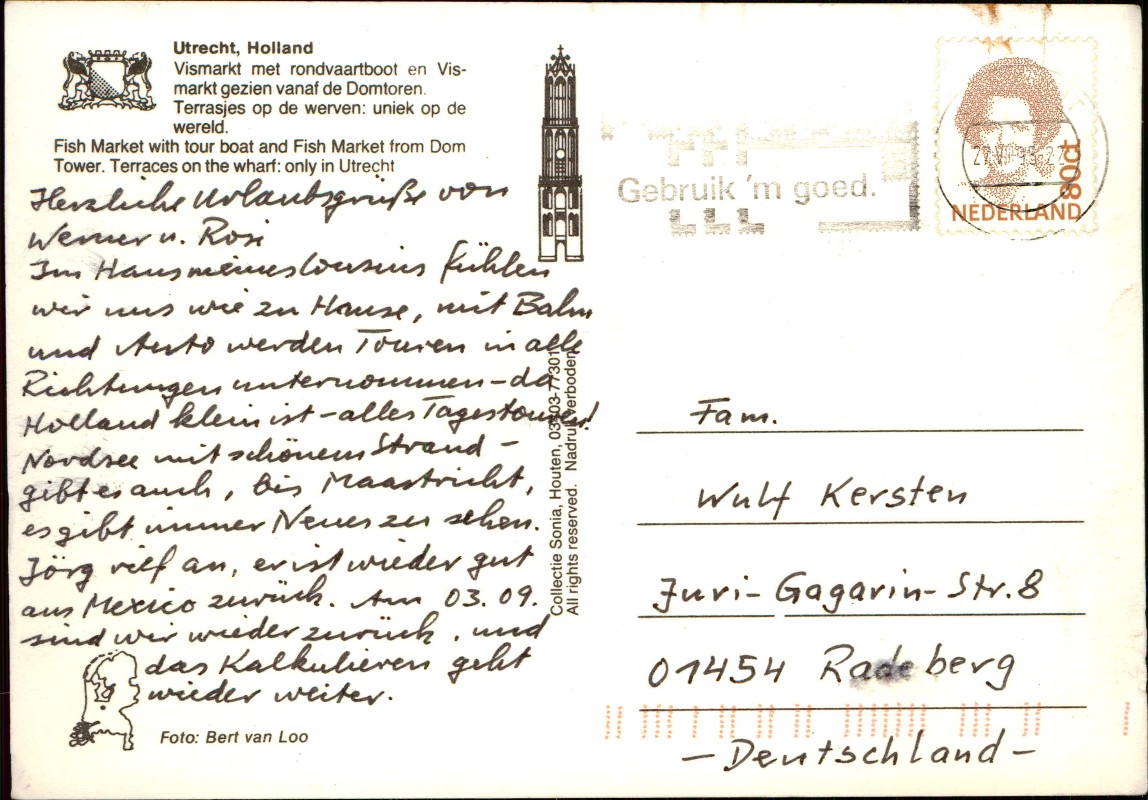 Utrecht, Holland
Vismarkt met rondvaartboot en Vis-
markt gezien vanaf de Domtoren.
Terrasjes op de werven: uniek op de
wereld.
Fish Market with tour boat and Fish Market from Dom
Tower. Terraces on the wharf: only in Utrecht
Herzliche Urlaubsgrüße von
Werner u. Rosi
Im Haus meines Cousins fühlen
wir uns wie zu Hause, mit Bahn
und Auto werden Touren in alle
Richtungen unternommen – da
Holland klein ist – alles Tagestouren!
Nordsee mit schönem Strand –
gibt es auch, bis Maastricht,
es gibt immer Neues zu sehen.
Jörg rief an, er ist wieder gut
aus Mexico zurück. Am 03.09.
sind wir wieder zurück, und
das Kalkulieren geht
wieder weiter.
Foto: Bert van Loo
Collectie Sonia, Houten, 03403-77301
All rights reserved. Nadruk verboden
Gebruik 'm goed.
80ct
NEDERLAND
Fam.
Wulf Kersten
Juri-Gagarin-Str. 8
01454 Radeberg
– Deutschland –